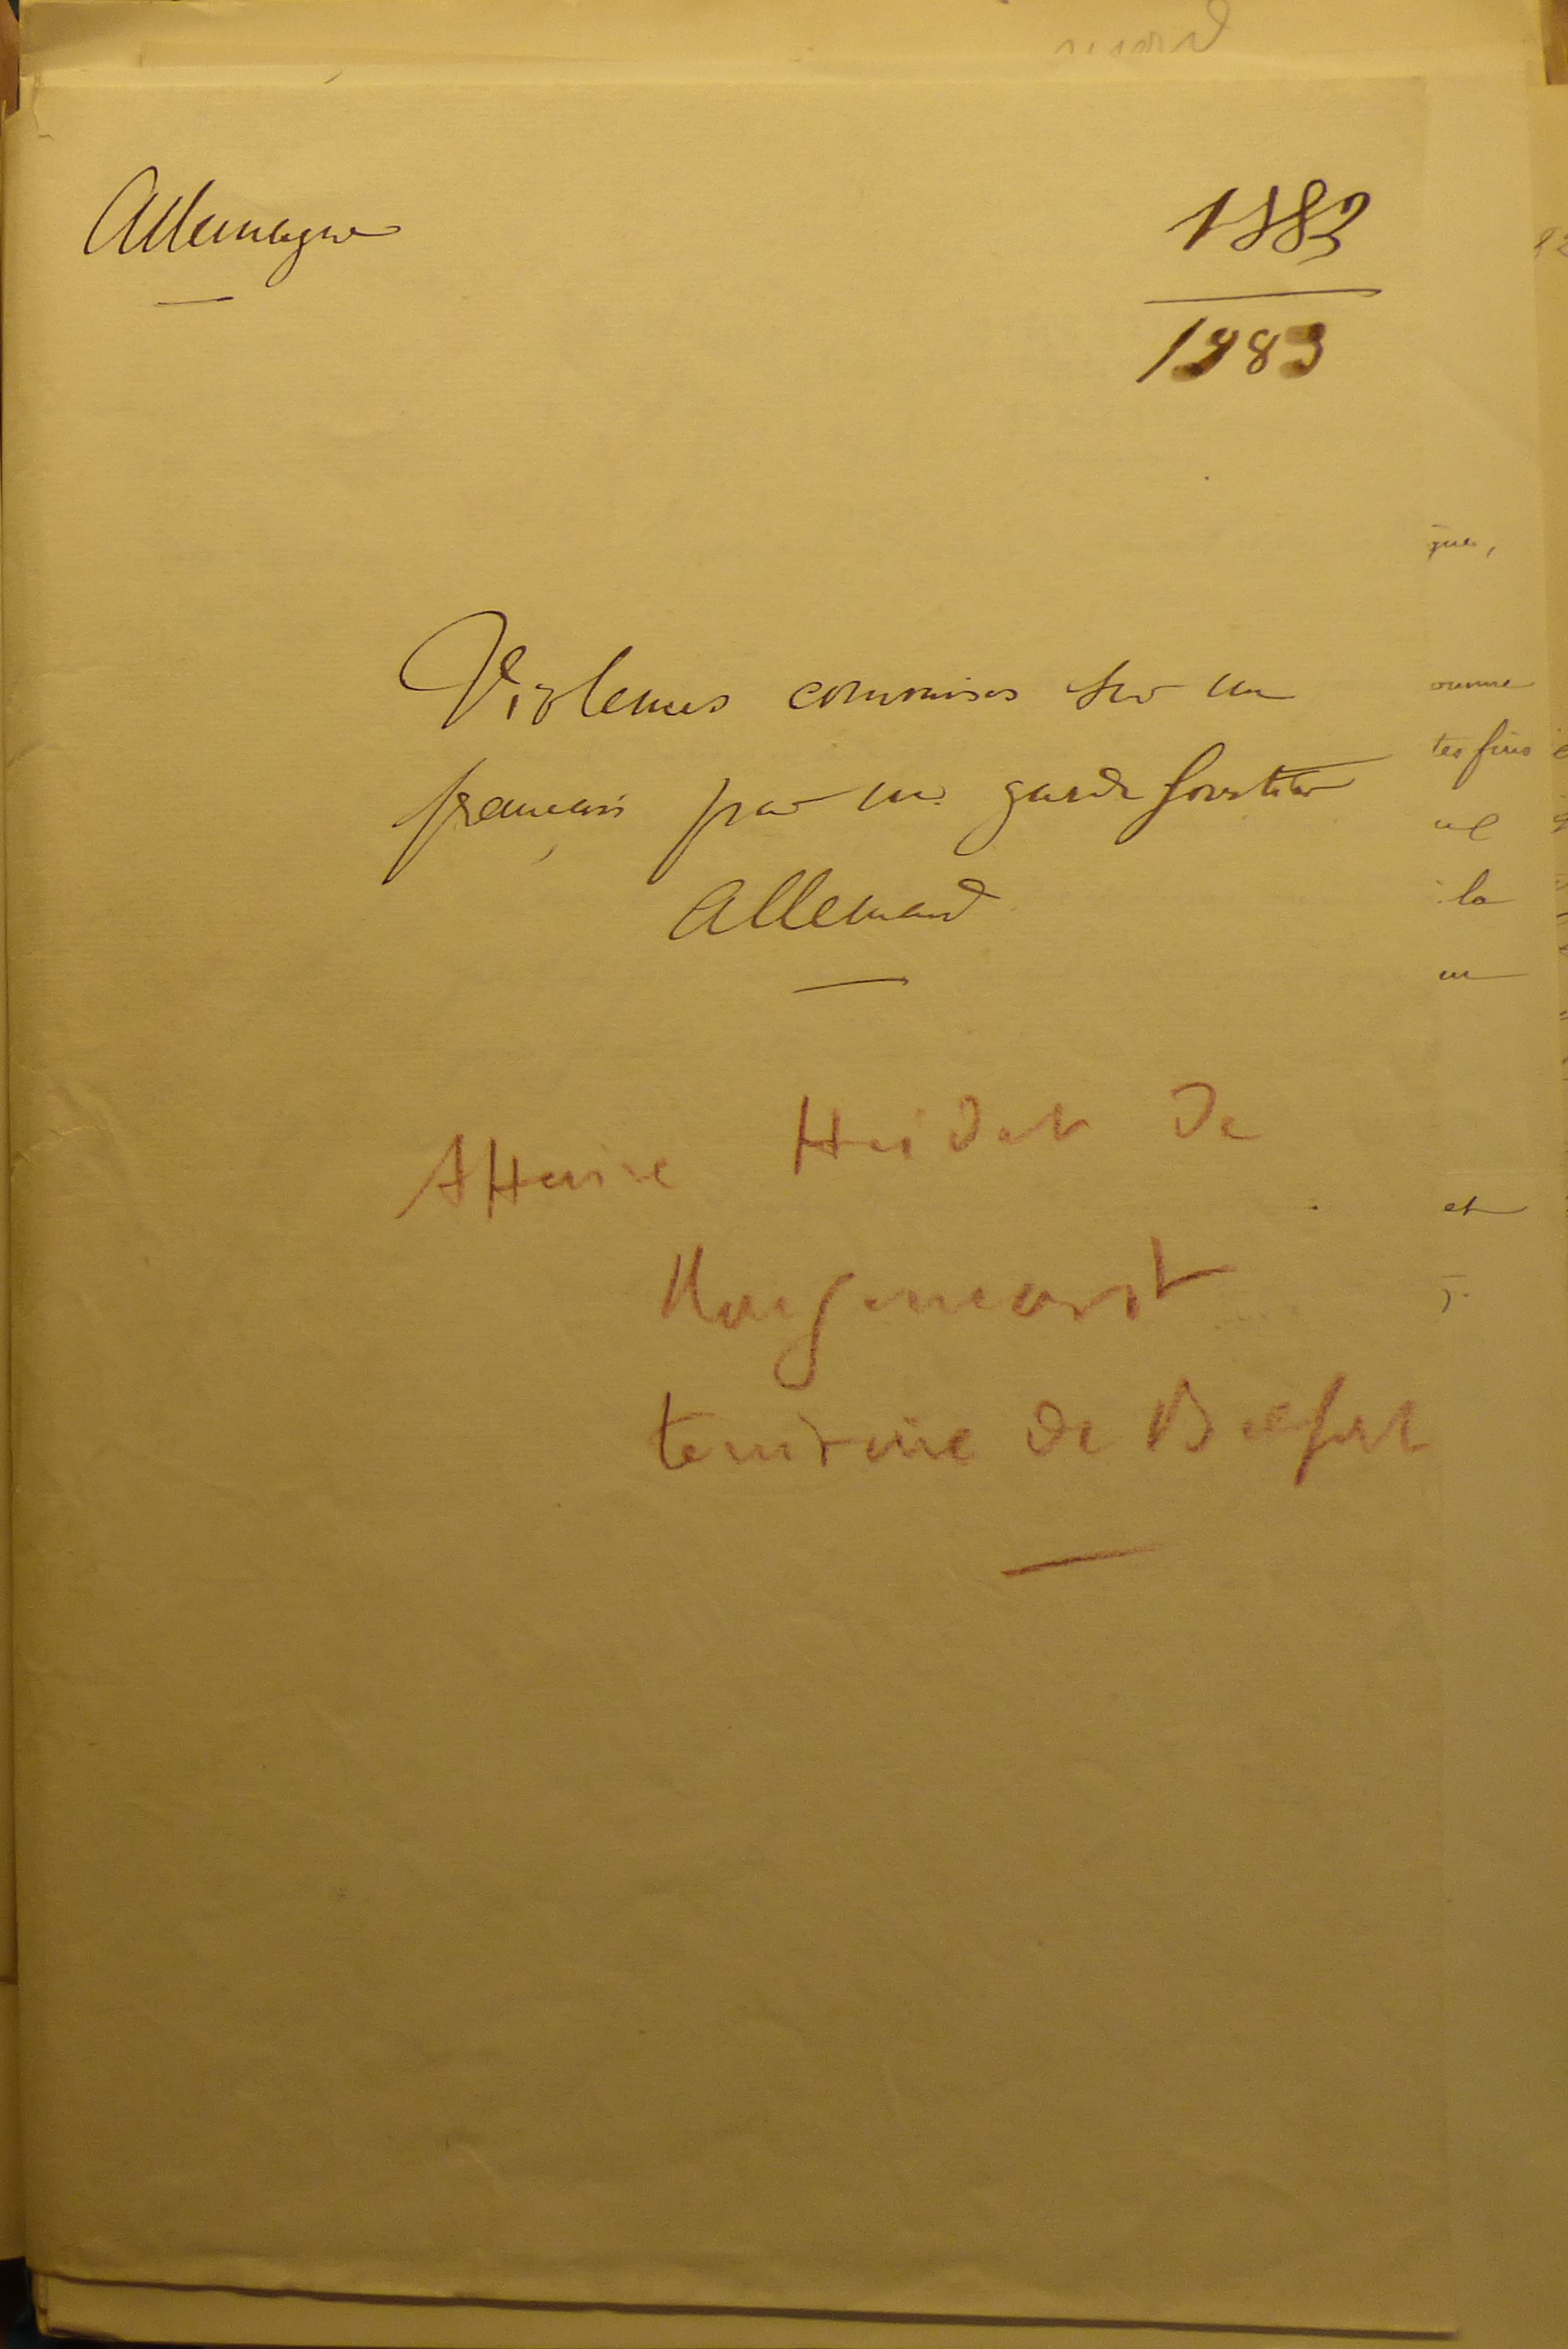 Allemagne
1882
1883
Violences commises sur un
français par un garde forestier
Allemand
Affaire Heidet de
Rougemont
territoire de Belfort
ques,
tes fins
la
un
et